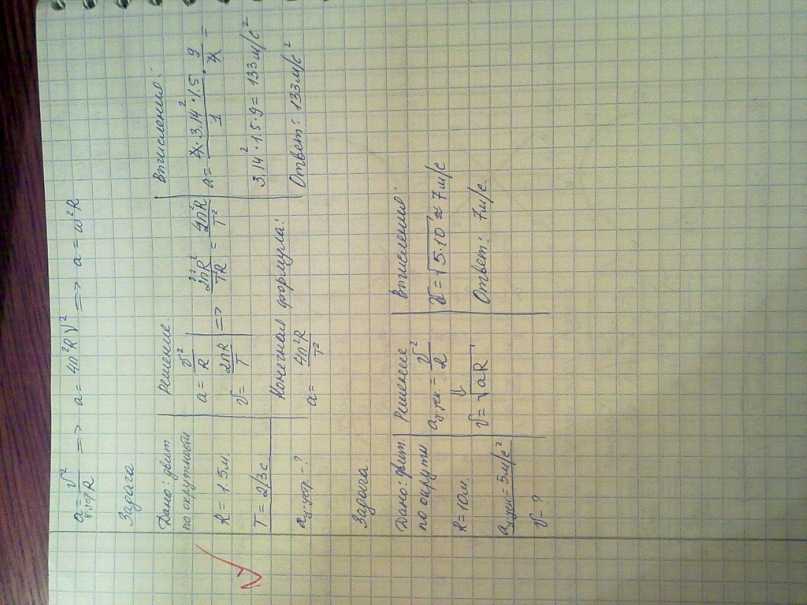 a = v²/R => a = 4π²Rν² => a = ω²R
Задача
Дано: двит
по окружности
R = 1.5 м.
T = 2/3 с
a - ?
Решение.
a = v²/R
v = 2πR/T
=> 2²π²R²/TR = 4π²R/T²
Конечная формула:
a = 4π²R/T²
Вычисления:
a = 4·3,14²·1.5/1 · 9/4 =
3,14²·1.5·9 = 133 м/с²
Ответ: 133 м/с²
Задача
Дано: двит
по окружн
R = 10 м.
a = 5 м/с²
v - ?
Решение
a = v²/R
↓
v = √aR
Вычисления:
v = √5·10 ≈ 7 м/с
Ответ: 7 м/с.